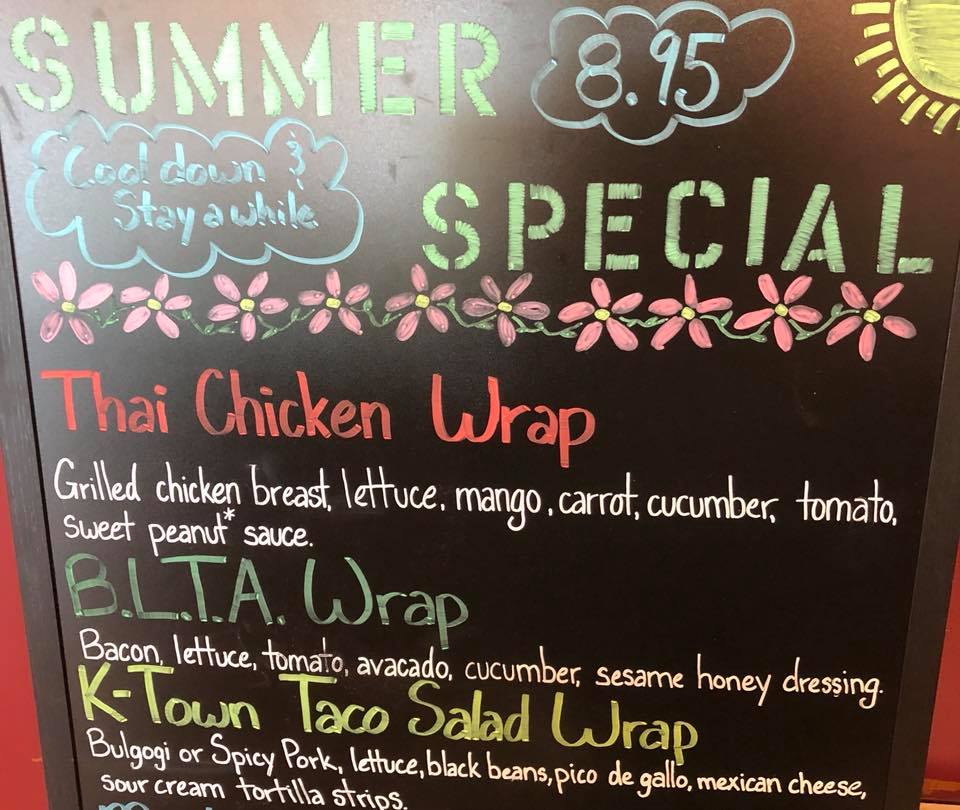 SUMMER 8.95
Cool down &
Stay a while
SPECIAL
Thai Chicken Wrap
Grilled chicken breast, lettuce, mango, carrot, cucumber, tomato,
sweet peanut* sauce.
B.L.T.A. Wrap
Bacon, lettuce, tomato, avacado, cucumber, sesame honey dressing.
K-Town Taco Salad Wrap
Bulgogi or Spicy Pork, lettuce, black beans, pico de gallo, mexican cheese,
sour cream tortilla strips.